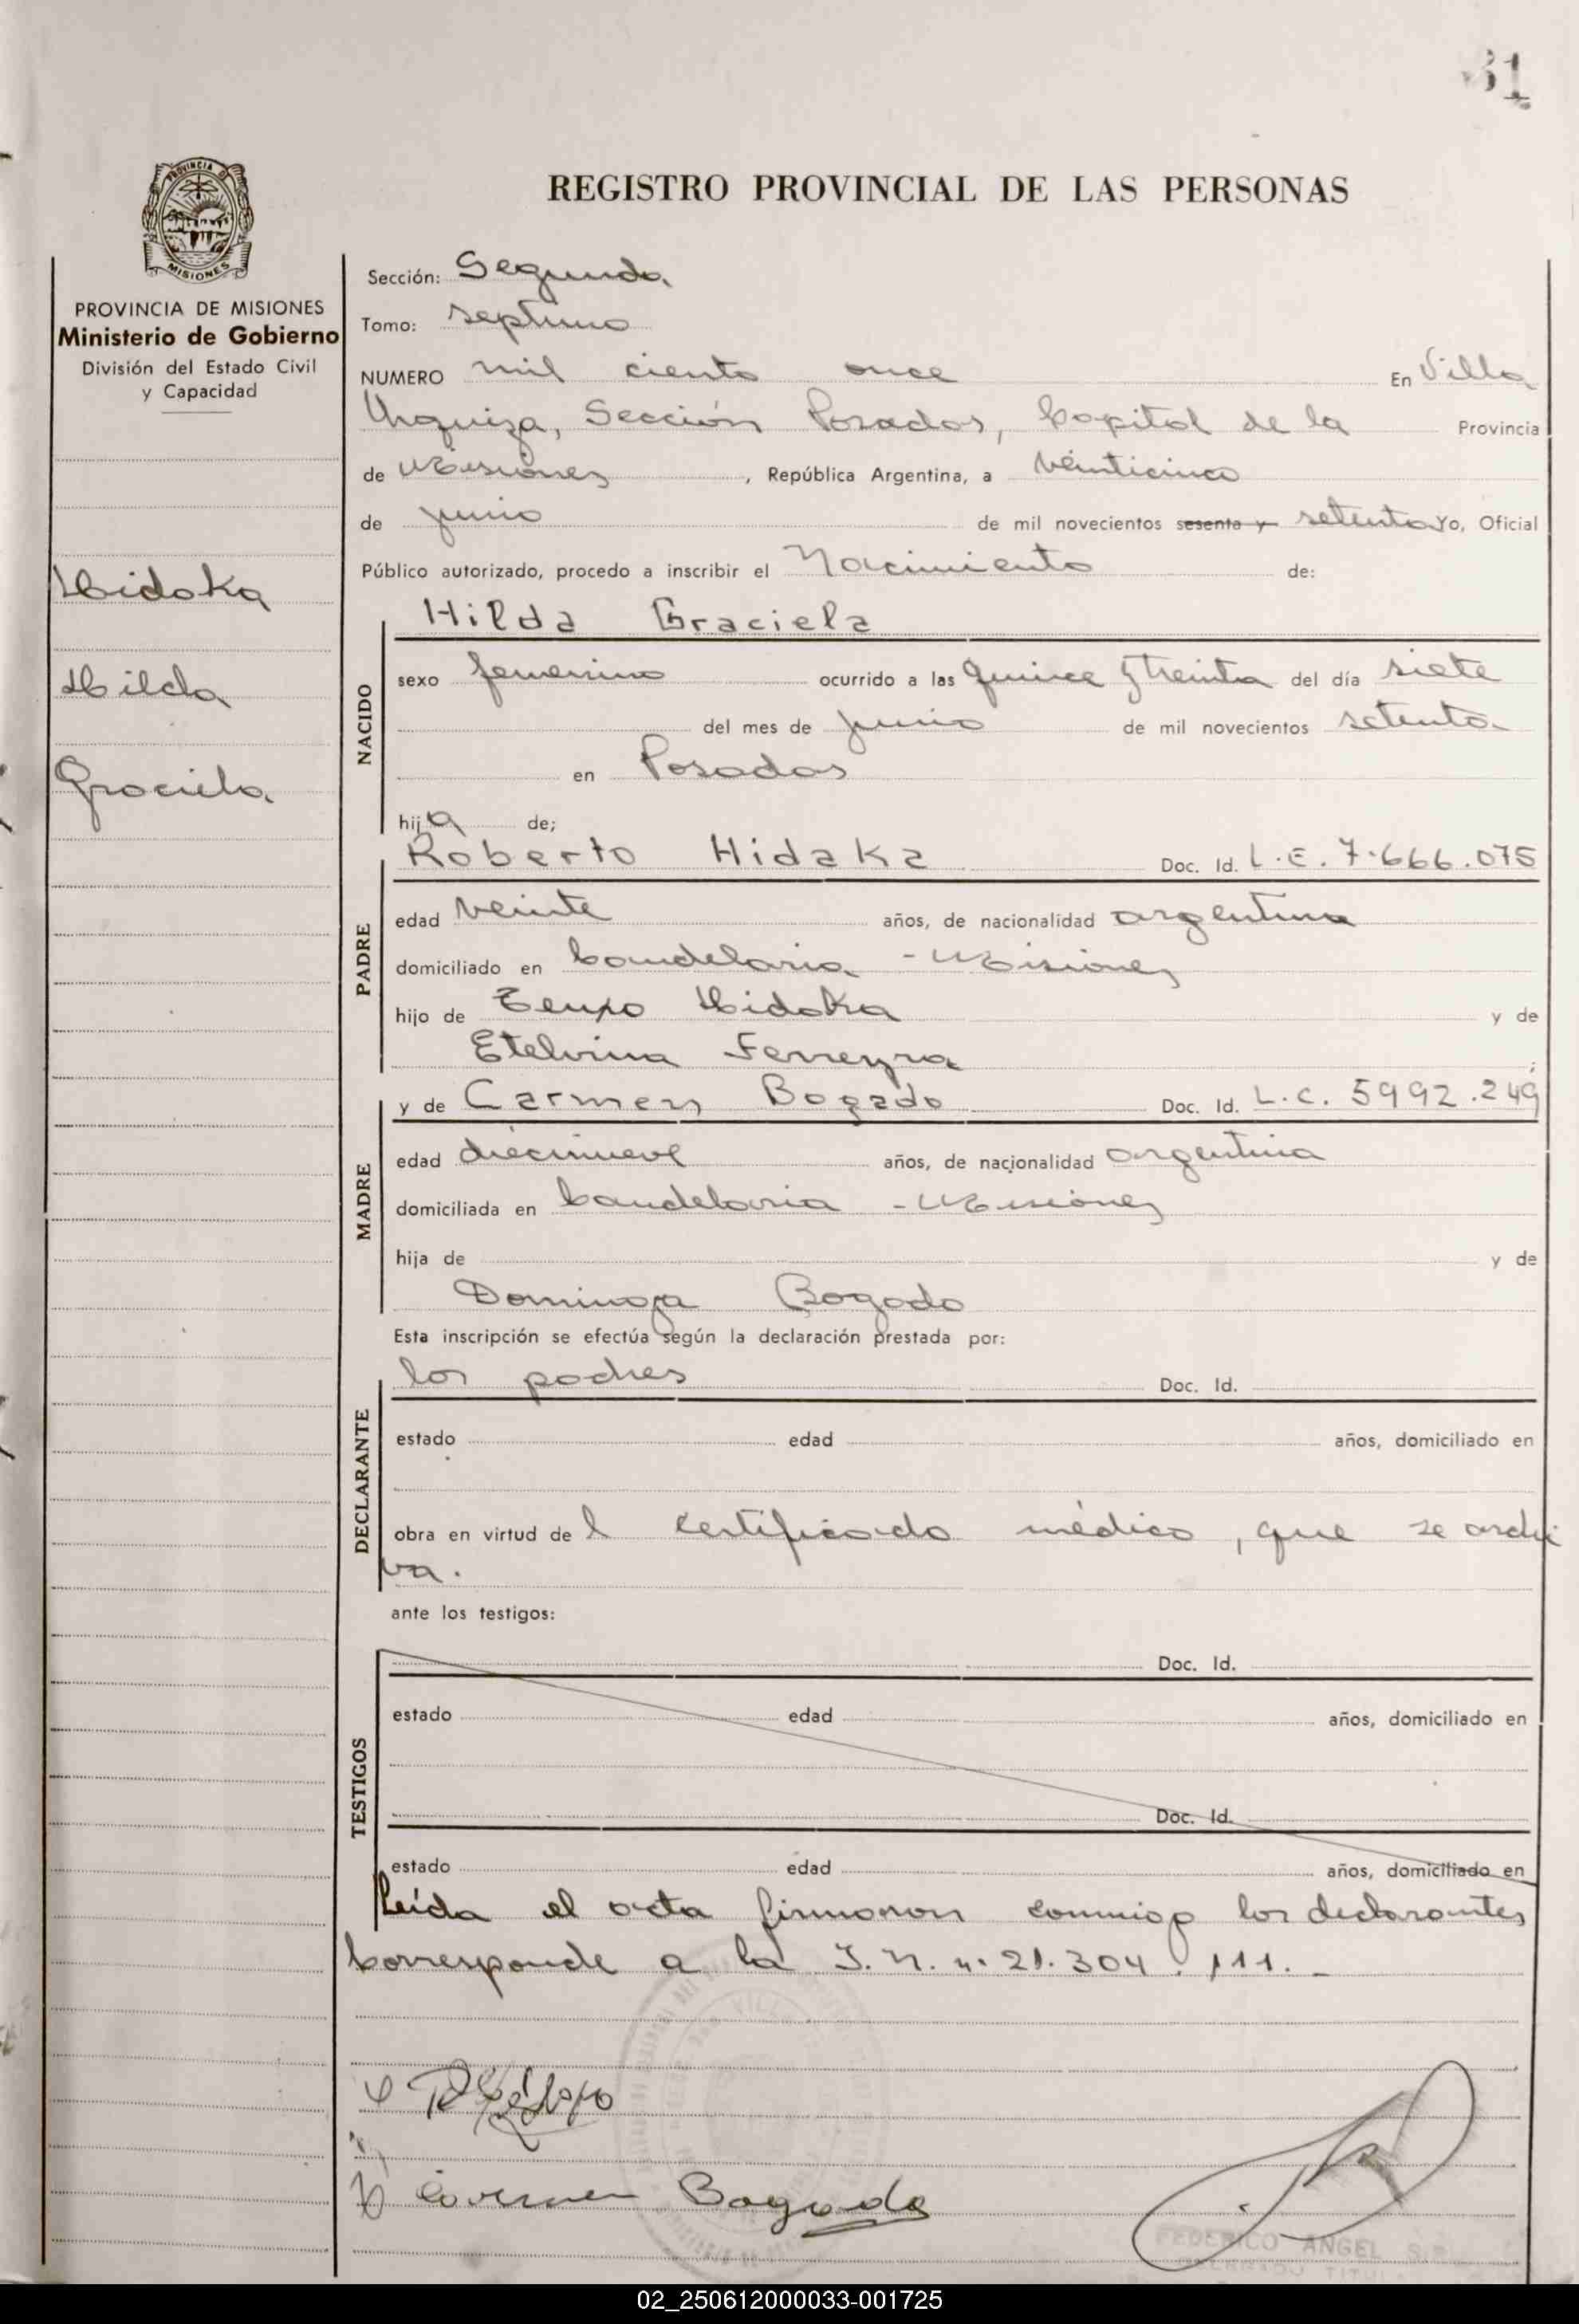 61
REGISTRO PROVINCIAL DE LAS PERSONAS
PROVINCIA DE MISIONES
PROVINCIA DE MISIONES
Ministerio de Gobierno
División del Estado Civil
y Capacidad
Hidaka
Hilda
Graciela
Sección: Segunda
Tomo: septimo
NUMERO mil ciento once En Villa
Urquiza, Sección Posadas, Capital de la Provincia
de Misiones, República Argentina, a veinticinco
de junio de mil novecientos sesenta y setenta Yo, Oficial
Público autorizado, procedo a inscribir el Nacimiento de:
NACIDO
Hilda Graciela
sexo femenino ocurrido a las quince y treinta del día siete
del mes de junio de mil novecientos setenta
en Posadas
hija de;
PADRE
Roberto Hidaka Doc. Id. L.E. 7.666.075
edad veinte años, de nacionalidad argentina
domiciliado en Candelaria - Misiones
hijo de Hidaka y de
Etelvina Ferreyra ;
MADRE
y de Carmen Bogado Doc. Id. L.C. 5992.249
edad diecinueve años, de nacionalidad argentina
domiciliada en Candelaria - Misiones
hija de y de
Dominga Bogado
Esta inscripción se efectúa según la declaración prestada por:
DECLARANTE
los padres Doc. Id.
estado edad años, domiciliado en
obra en virtud del certificado médico, que se archi
va.
ante los testigos:
TESTIGOS
Doc. Id.
estado edad años, domiciliado en
Doc. Id.
estado edad años, domiciliado en
Leída el acta firmaron conmigo los declarantes
Corresponde a la I.N. n. 21.304.111. -
Carmen Bogado
FEDERICO ANGEL
02_250612000033-001725